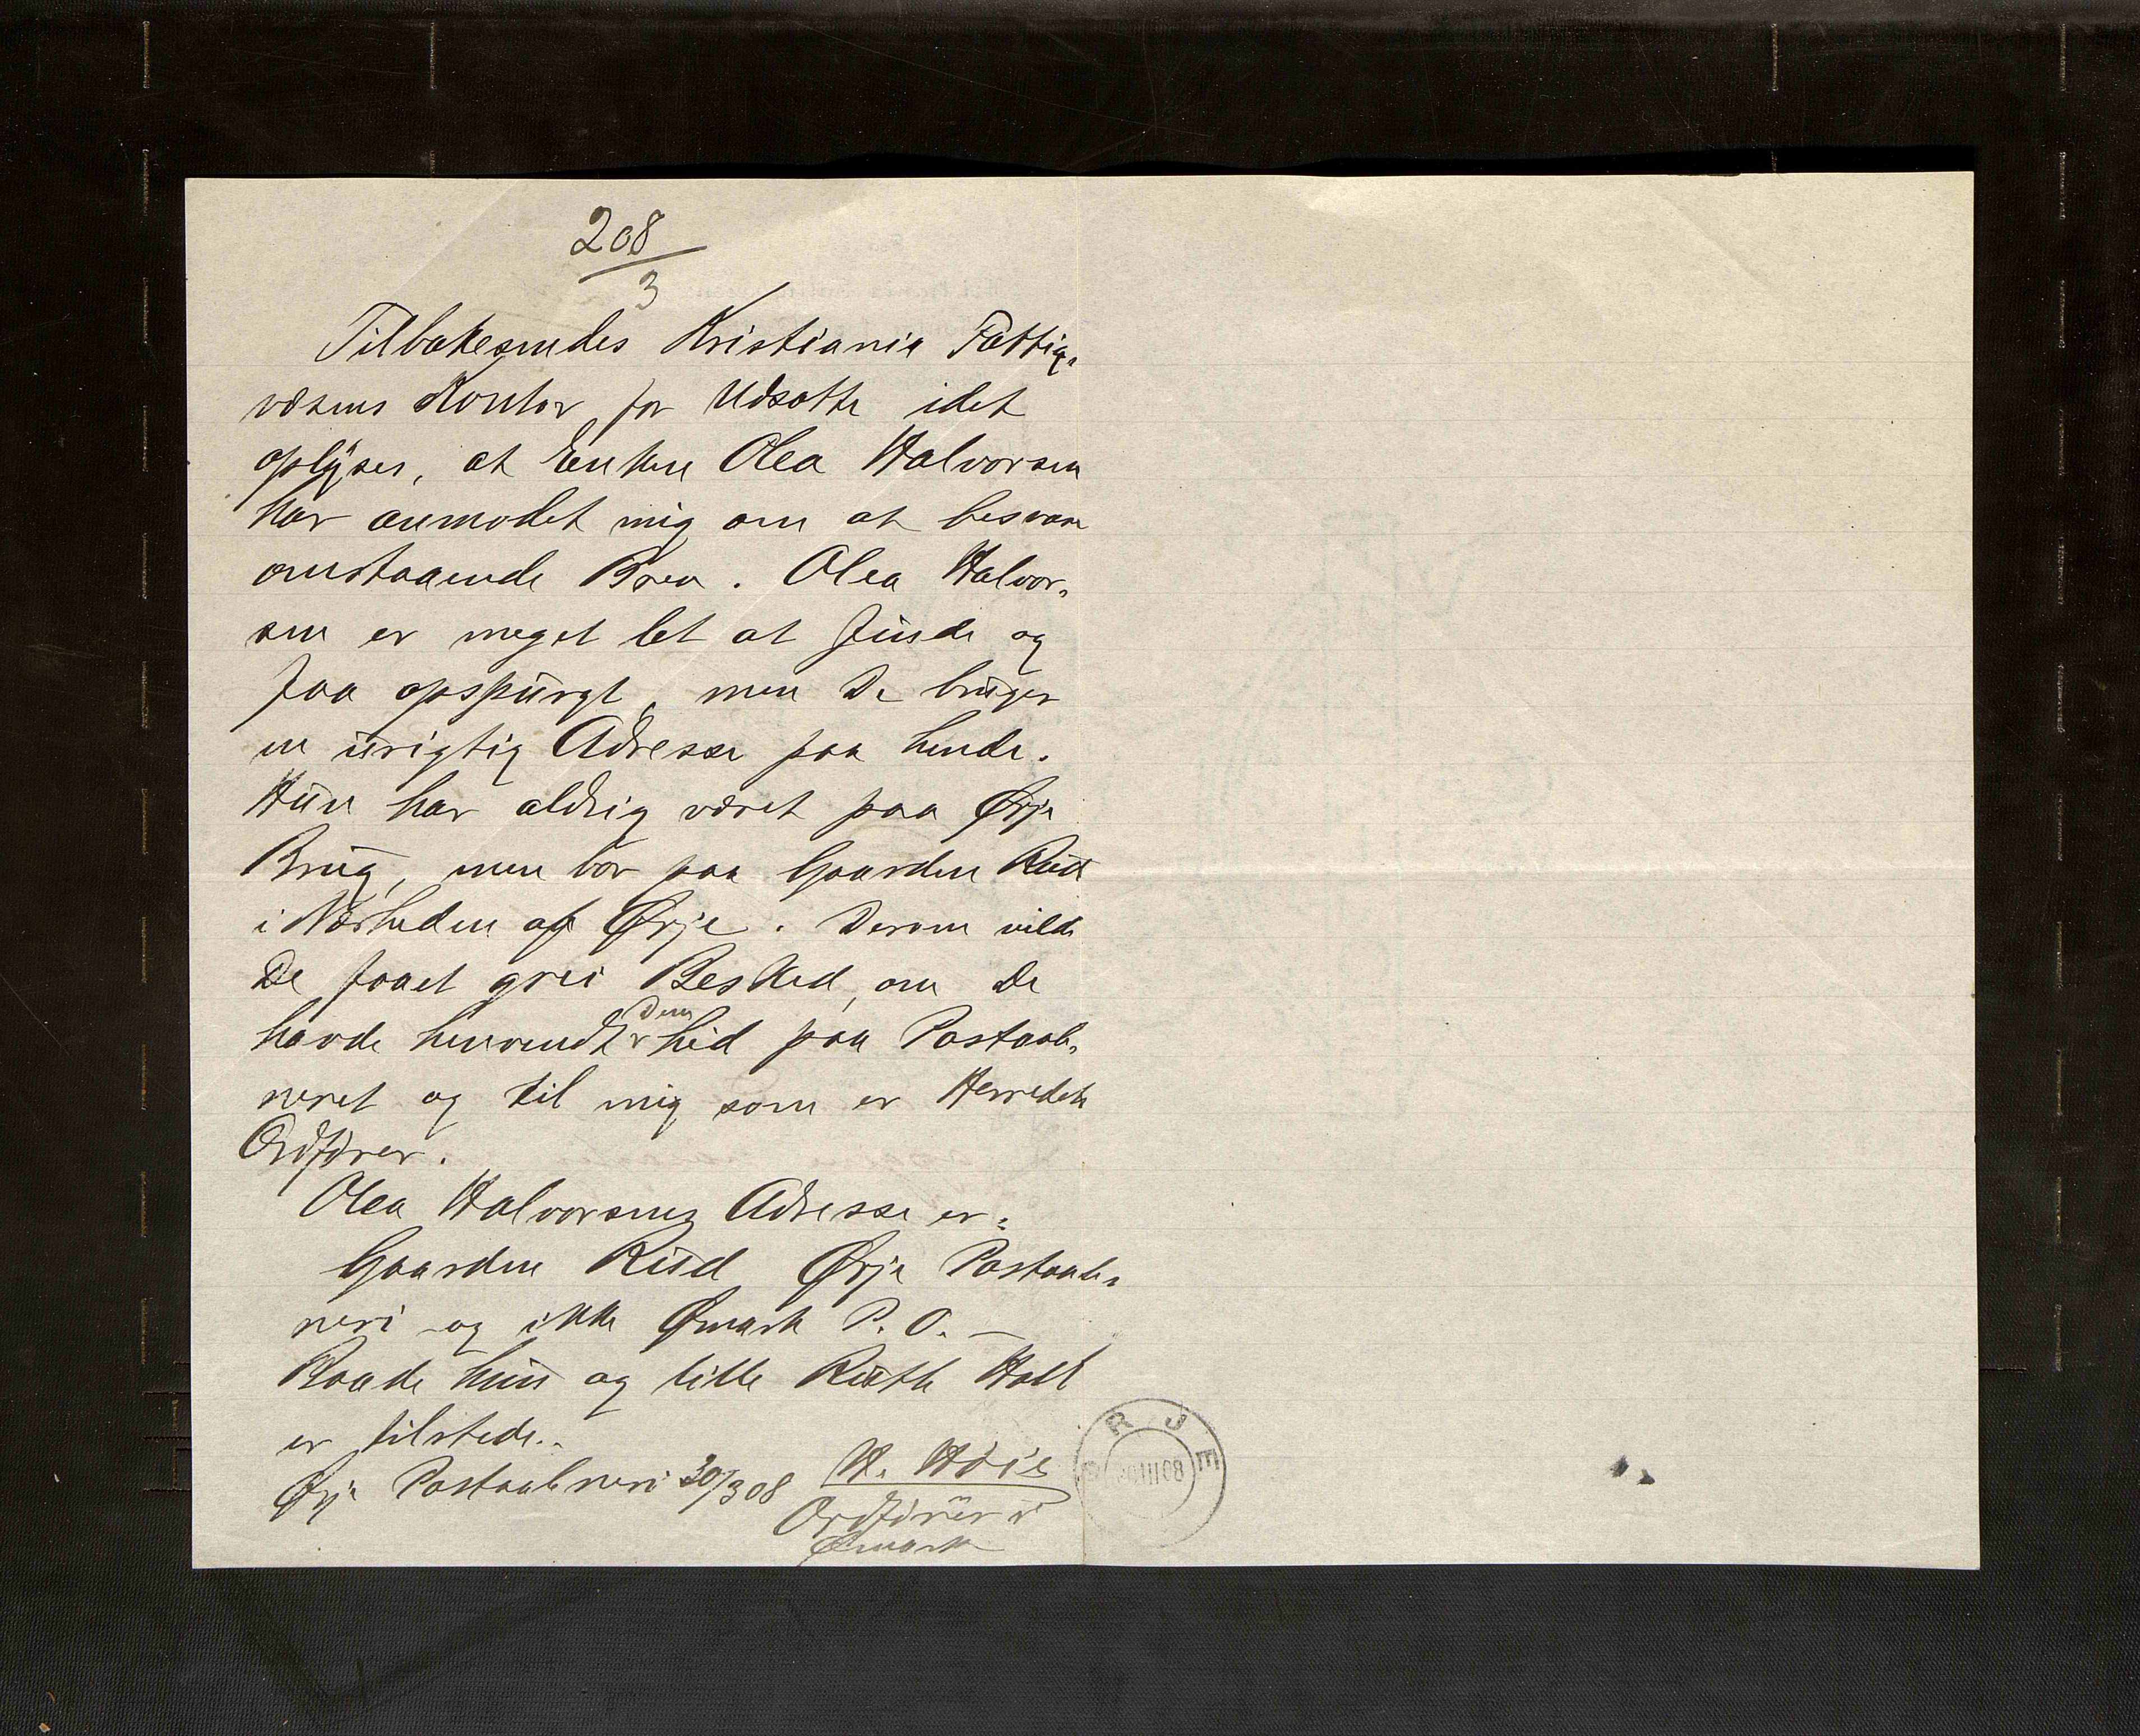 208
3
Tilbakesendes Kristiania Fattig-
væsens Kontor for Udsatte idet
oplyses, at Enken Olea Halvorsen
har anmodet mig om at besvare
omstaaende Brev. Olea Halvor-
sen er meget let at finde og
faa opspurgt, men De bruger
en urigtig Adresse paa hende.
Hun har aldrig været paa Ørje
Brug, men bor paa Gaarden Rud
i Nærheden af Ørje. Derom vilde
De faaet grei Besked, om De
havde henvendt Dem hid paa Postaab-
neret og til mig som er Herredets
Ordfører.
Olea Halvorsens Adresse er:
Gaarden Rud Ørje Postaab-
neri og ikke Ømark P. O. —
Baade hun og lille Ruth Holt
er tilstede.
Ørje Postaabneri 30/3 08 H. Høie
Ordfører i
Ømark
ØRJE
30III08